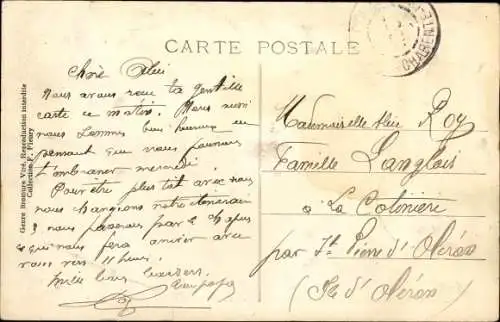 CARTE POSTALE
Chère Alice
Nous avons reçu ta gentille
carte ce matin. Nous aussi
nous sommes bien heureux en
pensant que nous pourrons
t'embrasser mercredi.
Pour être plus tôt avec vous
nous changions notre itinéraire
& nous passerons par le Chapus
ce qui nous fera arriver avec
vous vers 11 heures.
Mille bons baisers
Mademoiselle Alice Roy
Famille Langlois
à La Cotinière
par St Pierre d'Oléron
(Ile d'Oléron)
Genre Bromure Viré. Reproduction interdite
Collection F. Fleury
CHAREN